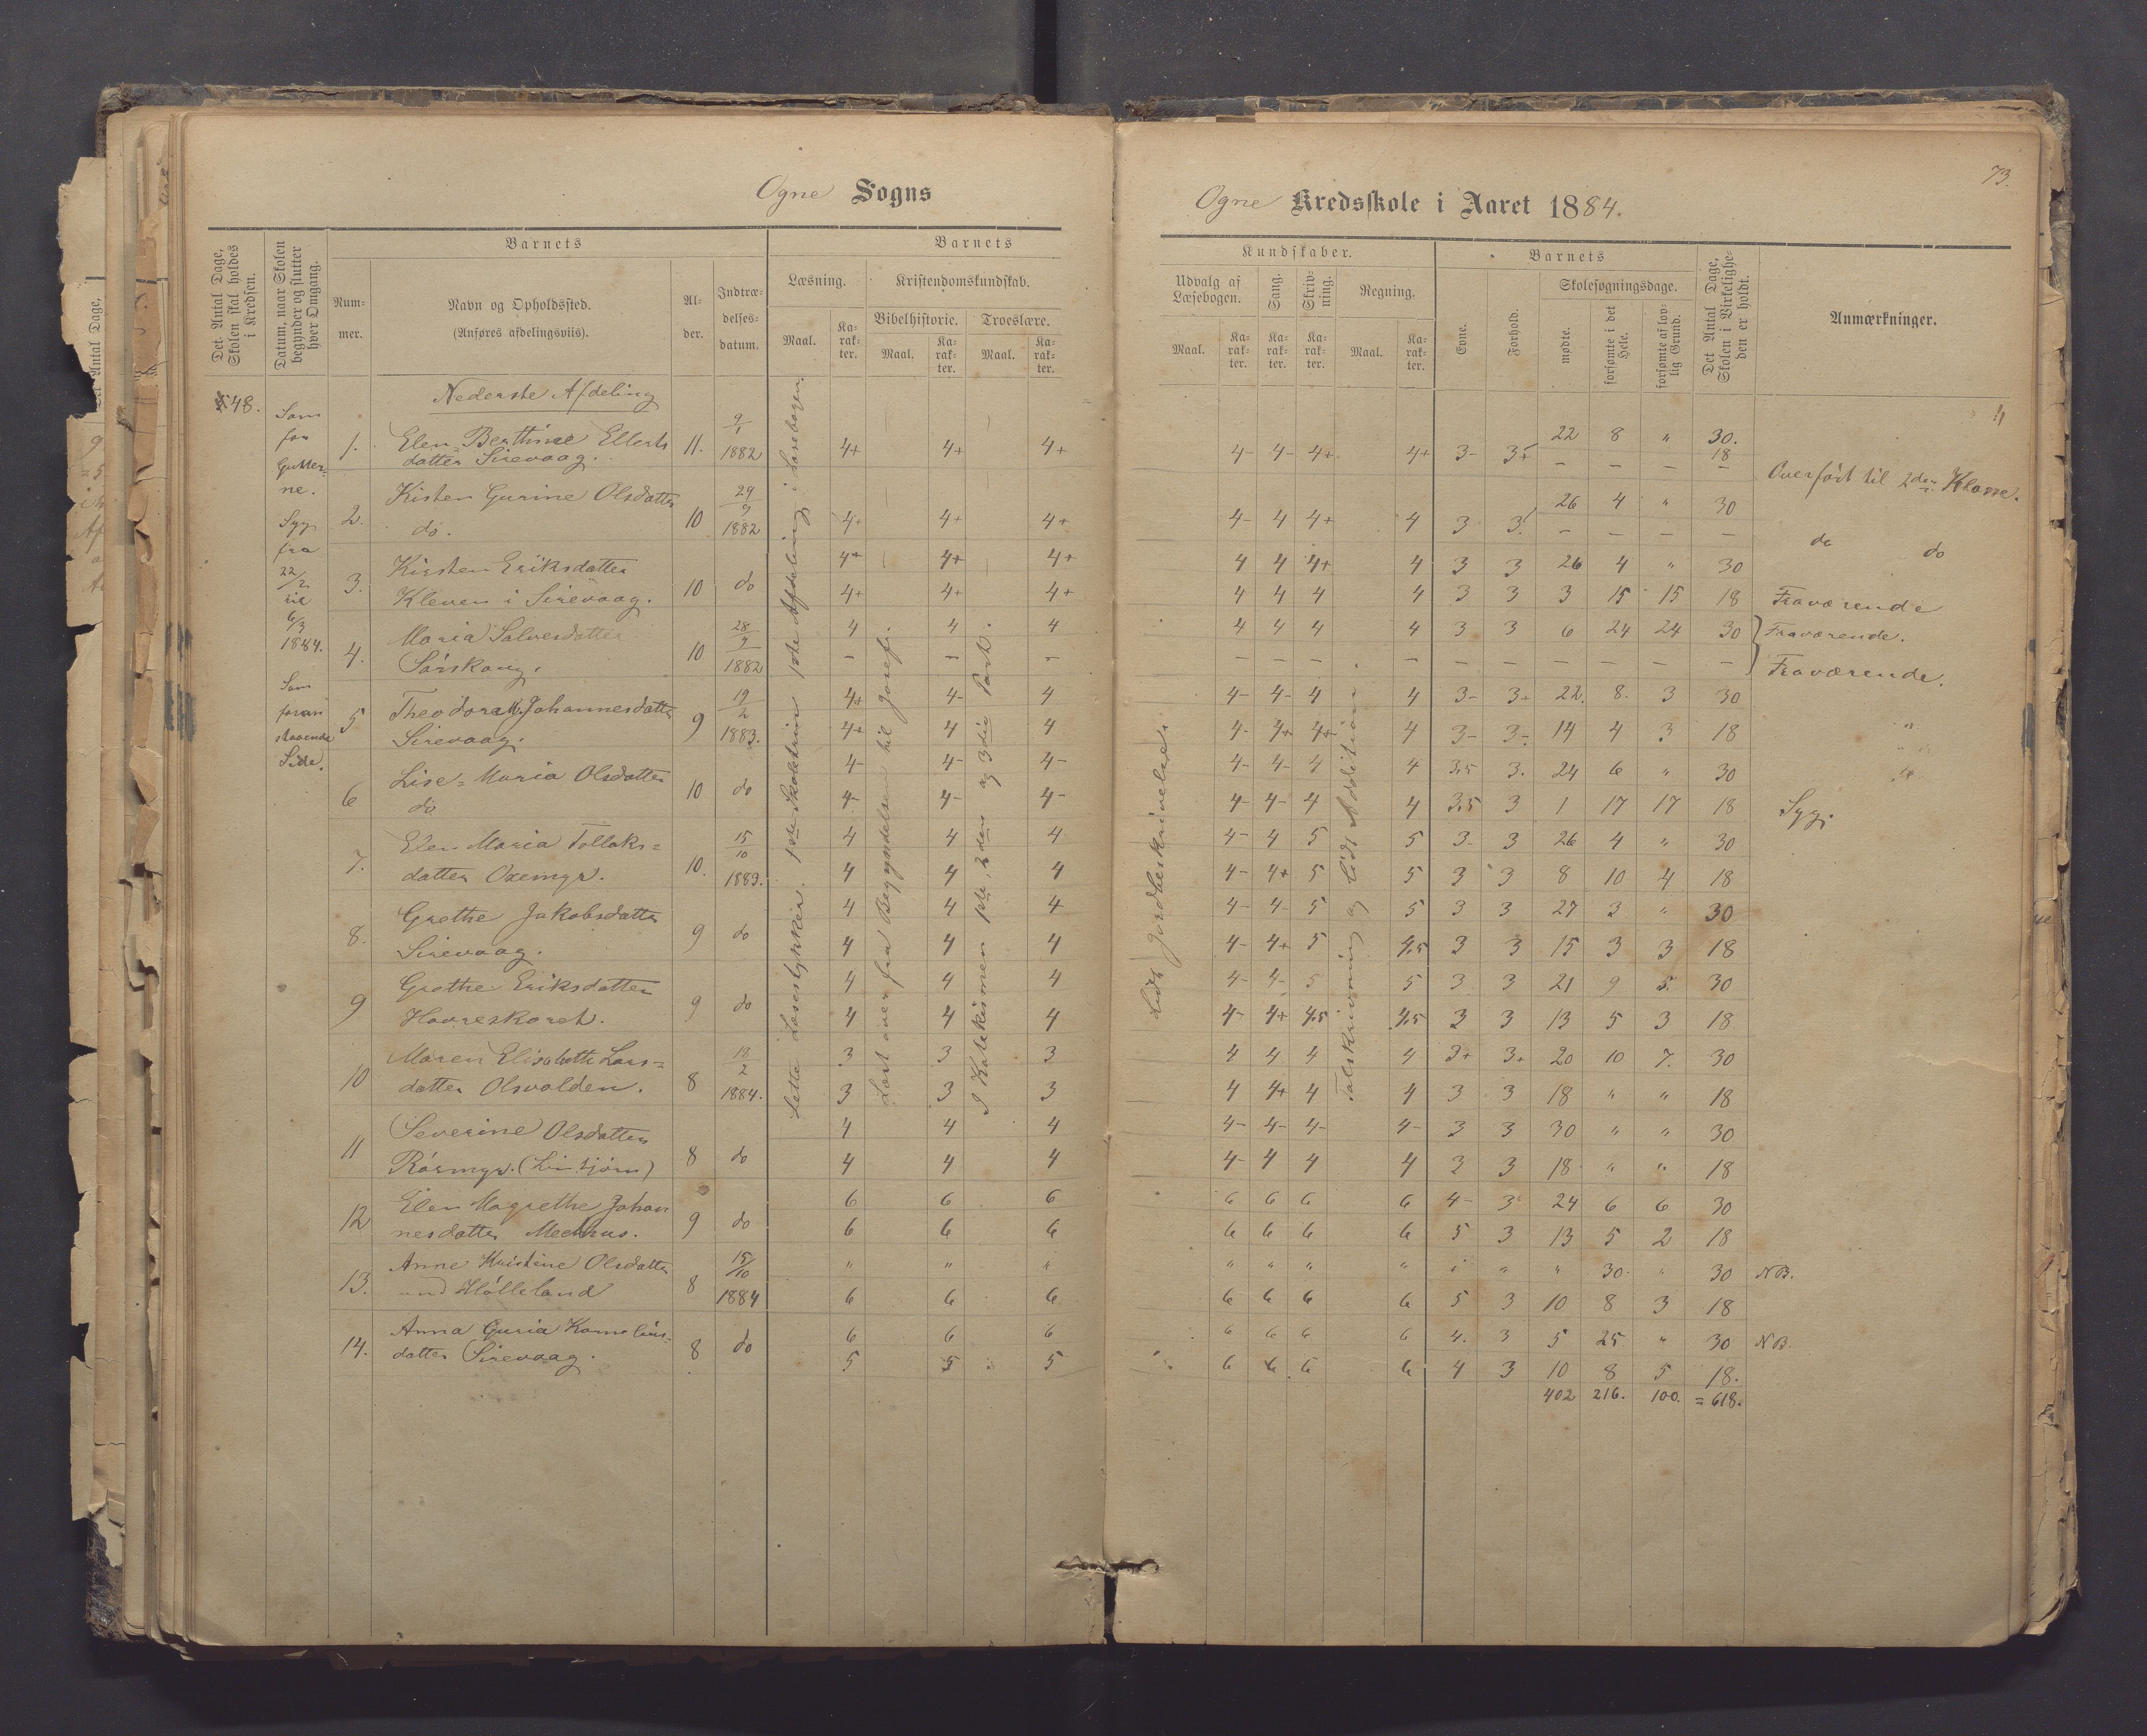 Ogne Sogns
Det Antal Dage, Skolen skal holdes i Kredsen.
Datum, naar Skolen begynder og slutter hver Omgang.
Barnets
Nummer.
Navn og Opholdssted.
(Anføres afdelingsviis).
Alder.
Indtrædelsesdatum.
Barnets
Læsning.
Kristendomskundskab.
Bibelhistorie.
Troeslære.
Maal.
Karakter.
Maal.
Karakter.
Maal.
Karakter.
48.
Som
for
Gutter-
ne.
Syg
fra
22/2
til
6/3
1884.
Som
foran
staaende
Side.
Nederste Afdeling
1. Elen Berthine Ellerts
datter Sirevaag. 11. 9/1 1882 4+ 4+ 4+
2. Kisten Gurine Olsdatter
do. 10 29/9 1882 4+ 4+ 4+
3. Kirsten Eriksdatter 4+ 4+ 4+
Kleven i Sirevaag. 10 do 4+ 4+ 4+
4. Maria Salvesdatter 4 4 4
Sørskaug. 10 28/9 1882 – – –
5 Theodora M. Johannesdatter 19/2 4+ 4- 4
Sirevaag. 9 1883. 4+ 4 4
6 Lise=Maria Olsdatter 4- 4- 4-
do 10 do 4- 4- 4-
7. Elen Maria Tollaks= 15/10 4 4 4
datter Oxemyr. 10. 1883. 4 4 4
8. Grethe Jakobsdatter 4 4 4
Sirevaag. 9 do 4 4 4
9 Grethe Eriksdatter 4 4 4
Havreskaret. 9 do 4 4 4
10 Maren Elisabeth Lars= 18/2 3 3 3
datter Olsvolden. 8 1884. 3 3 3
11 Severine Olsdatter 4 4 4
Rørmyr. 8 do 4 4 4
12 Elen Magrethe Johan 6 6 6
nesdatter Medhus. 9 do 6 6 6
13. Anne Kristine Olsdatter 15/10 " " "
Hølleland 8 1884 6 6 6
14. Anna Guria Kornelius= 6 6 6
datter Sirevaag. 8 do 5 5 5
Lette Læsestykker. 1ste Skoletrin 1ste Afdeling i Læsebogen.
Læst over fra Begyndelsen til Josef.
I Katekismen 1ste, 2den og 3die Part.
73.
Ogne Kredsskole i Aaret 1884.
Kundskaber.
Udvalg af Læsebogen.
Sang.
Skrivning.
Regning.
Maal.
Karakter.
Karakter.
Karakter.
Maal.
Karakter.
Barnets
Evne.
Forhold.
Skolesøgningsdage.
mødte.
forsømte i det Hele.
forsømte af lovlig Grund.
Det Antal Dage, Skolen i Virkeligheden er holdt.
Anmærkninger.
22 8 " 30.
4- 4- 4+ 4+ 3- 3+ – – – 18 –
Overført til 2den Klasse.
26 4 " 30
4- 4 4+ 4 3 3 – – – –
do do
4 4 4+ 4 3 3 26 4 " 30
4 4 4 4 3 3 3 15 15 18 Fraværende
4 4 4 4 3 3 6 24 24 30 Fraværende.
– – – – – – – – – – Fraværende.
4- 4- 4 4 3- 3+ 22. 8. 3 30
4- 4+ 4+ 4 3- 3- 14 4 3 18
4- 4- 4 4 3,5 3. 24 6 " 30
4- 4- 4 4 3,5 3 1 17 17 18 Syg.
4- 4 5 5 3- 3 26 4 " 30
4- 4+ 5 5 3 3 8 10 4 18
4- 4- 5 5 3 3 27 3 " 30
4- 4+ 5 4,5 3 3 15 3 3 18
4- 4- 5 5 3 3 21 9 5. 30
4- 4+ 4,5 4,5 3 3 13 5 3 18
4 4 4 4 3+ 3+ 20 10 7. 30
4 4+ 4 4 3 3 18 " " 18
4- 4- 4- 4- 3 3 30 " " 30
4- 4 4 4 3 3 18 " " 18
6 6 6 6 4- 3 24 6 6 30
6 6 6 6 5 3 13 5 2 18
" " " " " " " 30 " 30 NB.
6 6 6 6 5 3 10 8 3 18
6 6 6 6 4. 3 5 25 " 30 NB.
6 6 6 6 4 3 10 8 5 18.
402 216. 100. = 618.
Lidt Jordbeskrivelse
Talskrivning og lidt Addition.